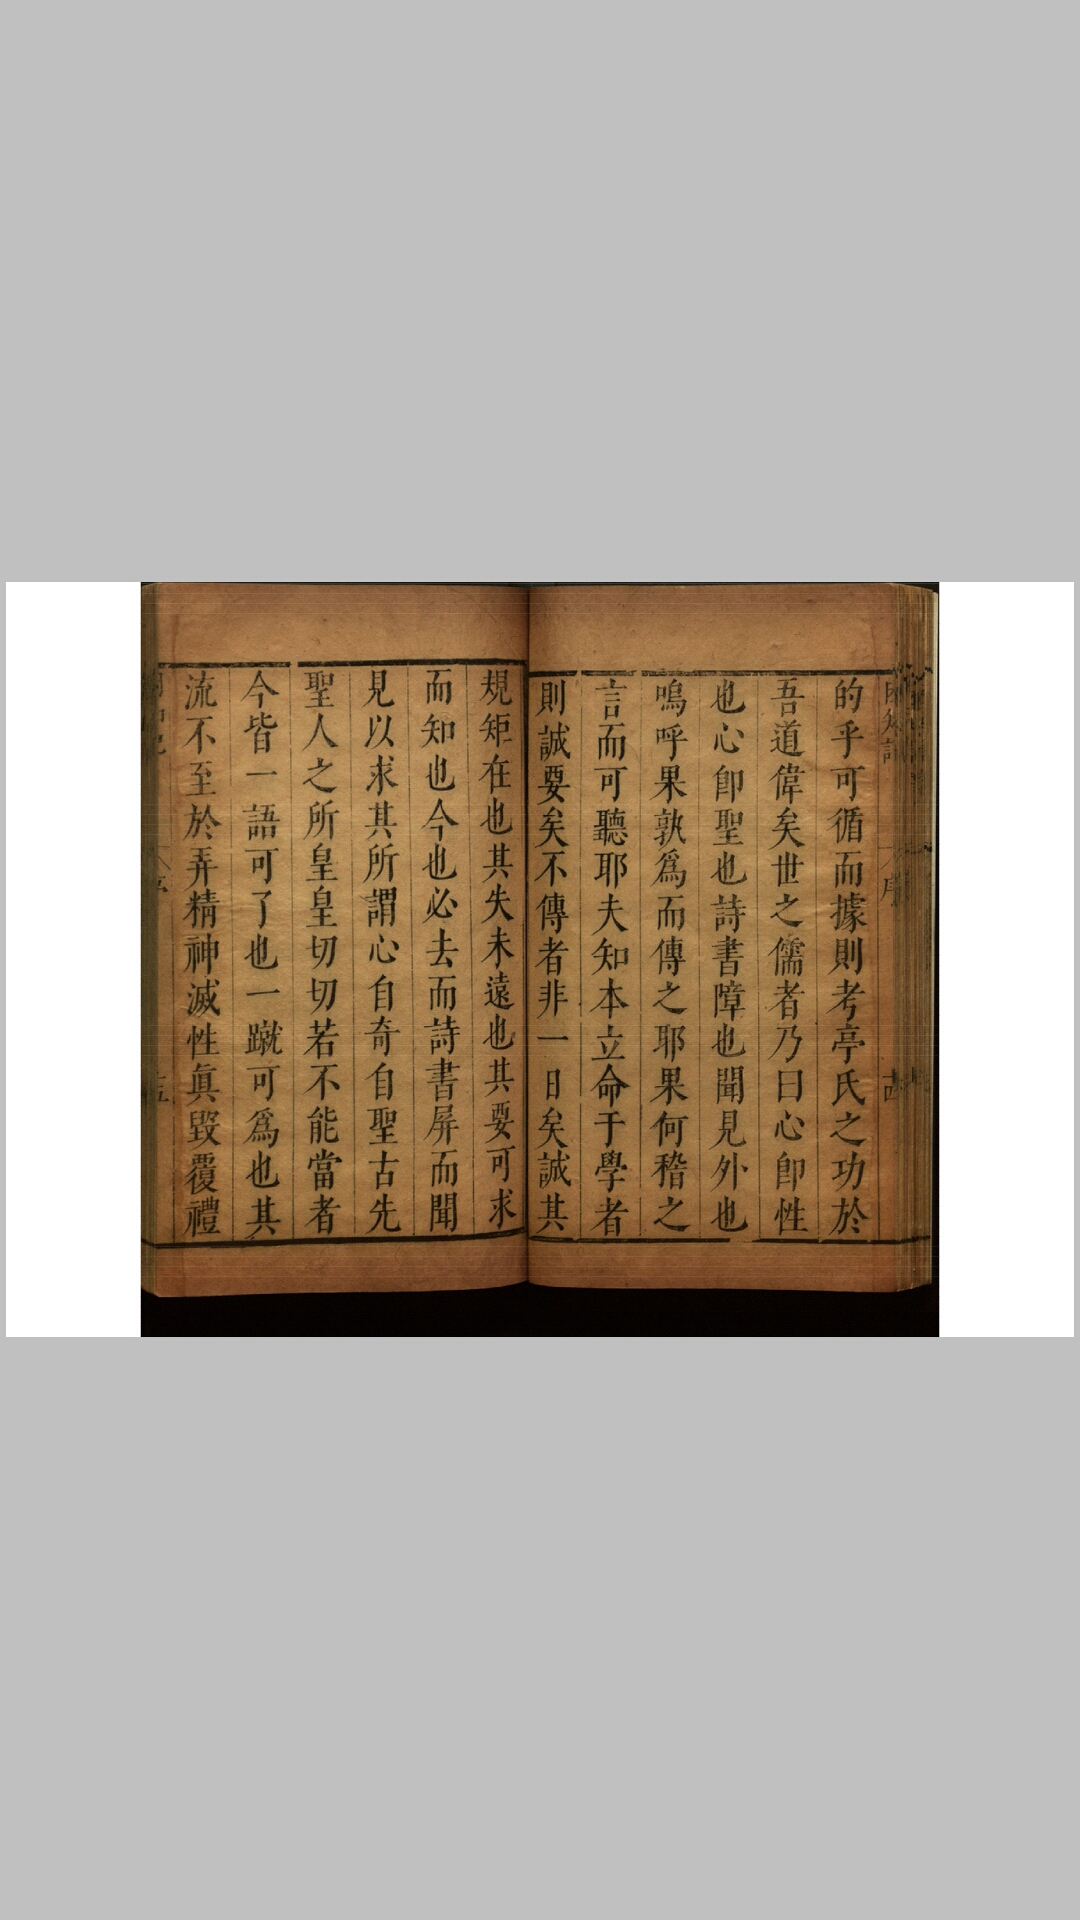 的乎可循而據則考亭氏之功於
吾道偉矣世之儒者乃曰心卽性
也心卽聖也詩書障也聞見外也
嗚呼果孰爲而傳之耶果何稽之
言而可聽耶夫知本立命于學者
則誠要矣不傳者非一日矣誠其
規矩在也其失未遠也其要可求
而知也今也必去而詩書屏而聞
見以求其所謂心自奇自聖古先
聖人之所皇皇切切若不能當者
今皆一語可了也一蹴可爲也其
流不至於弄精神滅性眞毀覆禮